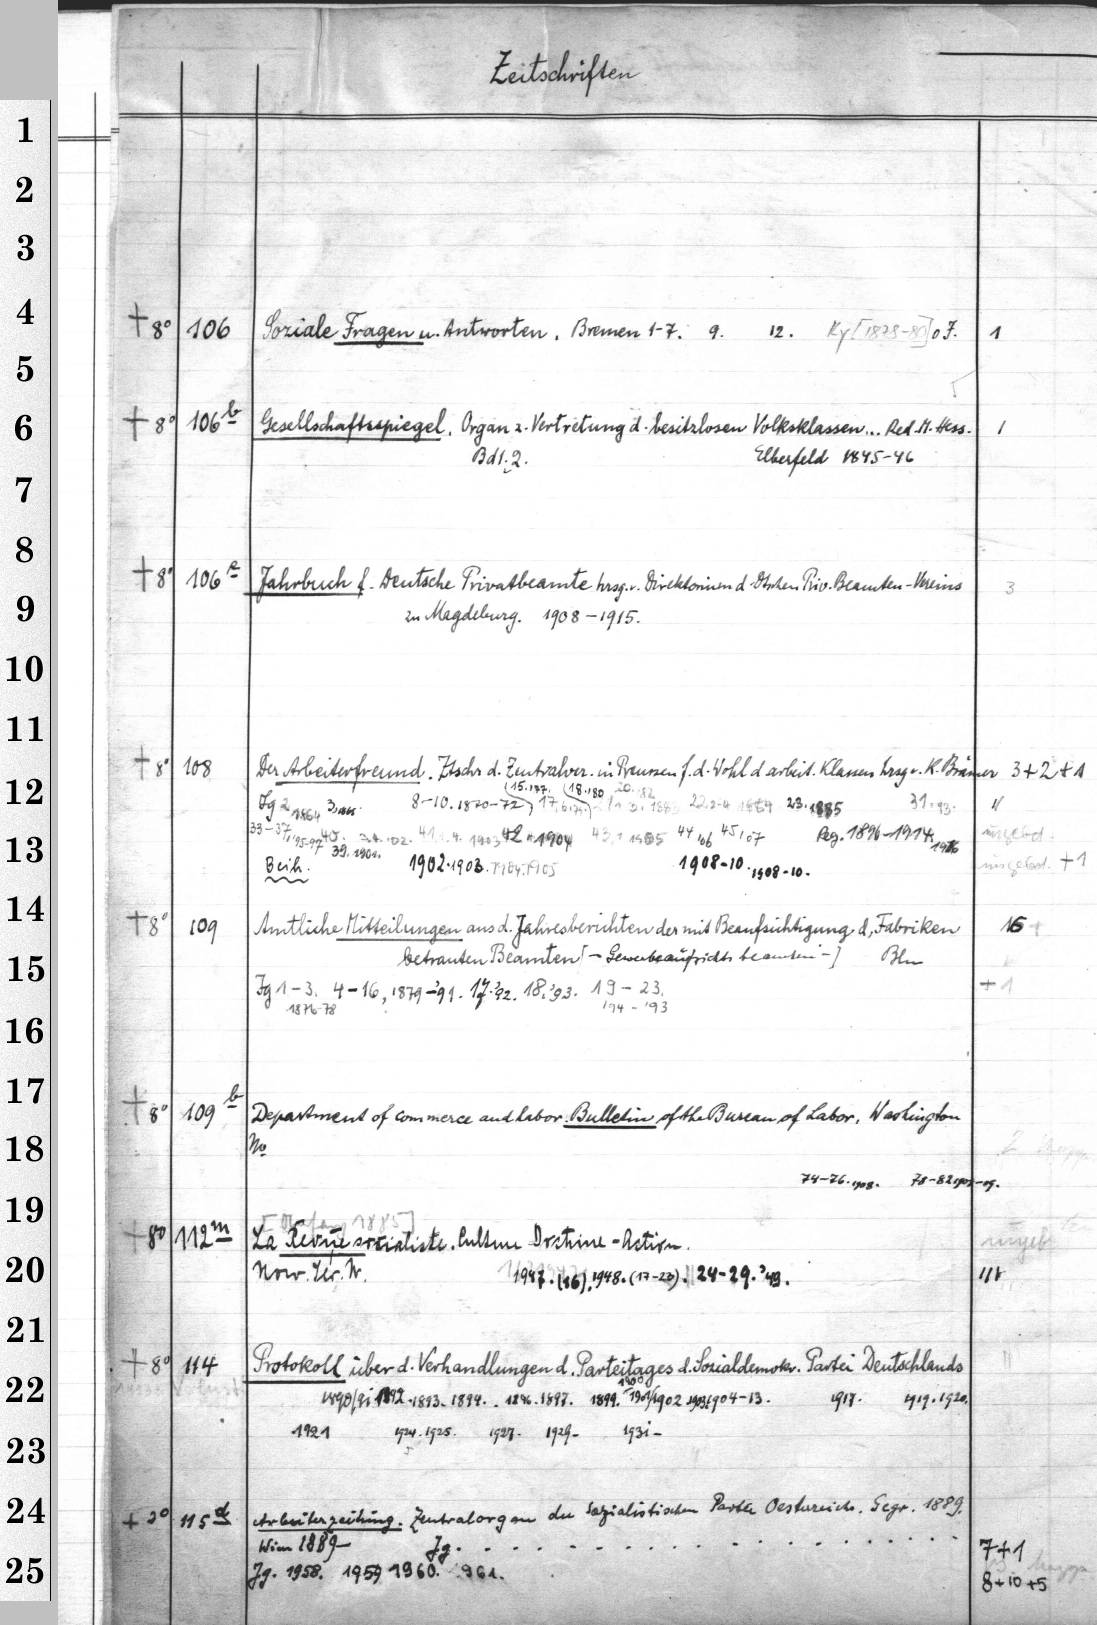 Zeitschriften
1
2
3
4
† 8° 106 Soziale Fragen u. Antworten. Bremen 1-7. 9. 12. [1878-80] o J. 1
5
6
† 8° 106 b Gesellschaftsspiegel. Organ z. Vertretung d. besitzlosen Volksklassen... Red. M. Hess. 1
Bd 1. 2. Elberfeld 1845-46
7
8
† 8° 106 e Jahrbuch f. Deutsche Privatbeamte hrsg. v. Direktorium d. Dtschen Priv. Beamten-Vereins 3
9
zu Magdeburg. 1908-1915.
10
11
† 8° 108 Der Arbeiterfreund. Ztschr d. Zentralver. in Preussen f. d. Wohl d arbeit. Klassen hrsg v. K. Brämer 3+2+1
12
Jg 2 1864 3. 8-10. 1870-72 23. 1885 31. 93. "
33-37 '95-97 40. '02. 41. 1903 42 1904 43. 1905 44 '06 45 '07 Reg. 1896-1914. ungebd.
13
39. 1901.
Beih. 1902. 1903. 1908-10. 1908-10. ungebd. +1
14
† 8° 109 Amtliche Mitteilungen aus d. Jahresberichten der mit Beaufsichtigung d. Fabriken 16
15
betrauten Beamten [- Gewerbeaufsichtsbeamten -] Bln
Jg 1-3. 4-16, 1879-'91. 17. '92. 18. '93. 19-23. +1
1876-78 '94-
16
17
† 8° 109 b Department of commerce and labor. Bulletin of the Bureau of Labor, Washington
18
No
74-76. 1908. 78-82
19
† 8° 112 m La Revue socialiste. Culture Doctrine-Action.
20
Nouv. Sér. N. 1947. (16), 1948. (17-23). 24-29. '49.
21
† 8° 114 Protokoll über d. Verhandlungen d. Parteitages d. Sozialdemokr. Partei Deutschlands
22
1890/91 1892. 1893. 1894. 1896. 1897. 1899. 1900 1901/1902 1903/1904-13. 1917. 1919. 1920.
1921 1924. 1925. 1927. 1929- 1931-
23
24
+ 2° 115 d Arbeiterzeitung. Zentralorgan der Sozialistischen Partei Oesterreichs. Gegr. 1889.
Wien 1889- Jg. 7+1
25
Jg. 1958. 1959 1960. 961. 8+10+5